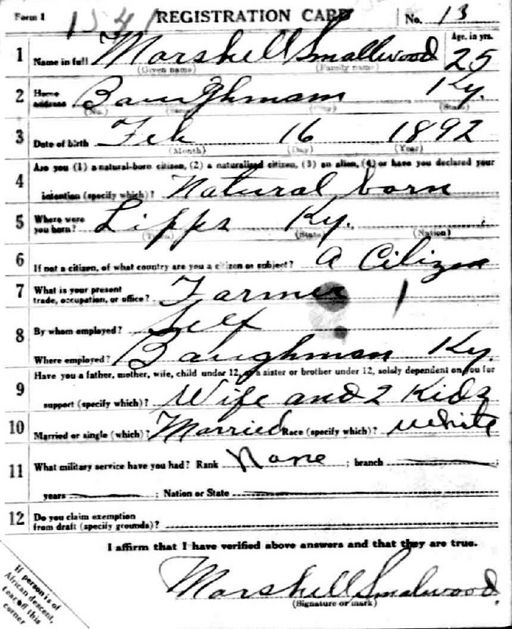 Form 1 1541 REGISTRATION CARD No. 13
1 Name in full Marshell Smallwood Age, in yrs. 25
(Given name) (Family name)
2 Home address Baughmam Ky.
(No.) (City) (State)
3 Date of birth Feb 16 1892
(Month) (Day) (Year)
4 Are you (1) a natural-born citizen, (2) a naturalized citizen, (3) an alien, (4) or have you declared your
intention (specify which)? Natural born
5 Where were you born? Lipps Ky.
(Town) (State) (Nation)
6 If not a citizen, of what country are you a citizen or subject? A Citizen
7 What is your present trade, occupation, or office? Farmer 1
8 By whom employed? Self
Where employed? Baughman Ky.
9 Have you a father, mother, wife, child under 12, or a sister or brother under 12, solely dependent on you for
support (specify which)? Wife and 2 Kidz
10 Married or single (which)? Married Race (specify which)? White
11 What military service have you had? Rank None ; branch
years ; Nation or State
12 Do you claim exemption from draft (specify grounds)?
I affirm that I have verified above answers and that they are true.
Marshell Smalwood
(Signature or mark)
If person is of
African descent,
tear off this
corner